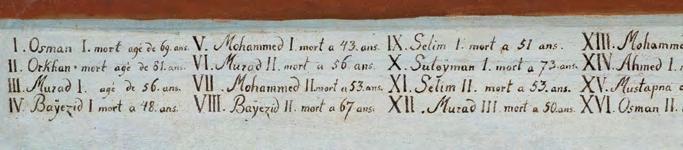 I. Osman I. mort agé de 69. ans. V. Mohammed I. mort a 43. ans. IX. Selim I. mort a 51 ans. XIII. Mohamme
II. Orkhan. mort agé de 81. ans. VI. Murad II. mort a 56 ans. X. Suleyman I. mort a 73. ans. XIV. Ahmed I.
III. Murad I. agé de 56. ans. VII. Mohammed II mort a 53. ans. XI. Selim II. mort a 53. ans. XV. Mustapha
IV. Baÿezid I mort a 48. ans. VIII. Baÿezid II. mort a 67 ans. XII. Murad III. mort a 50. ans. XVI. Osman II.